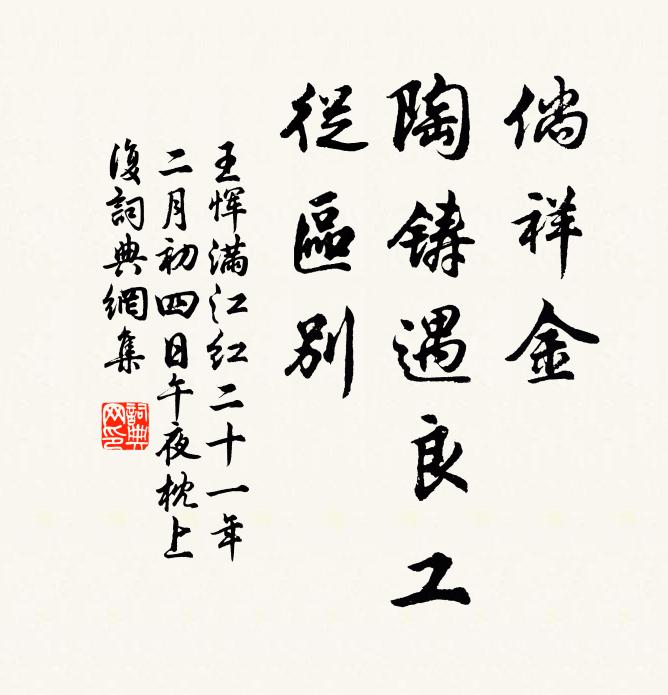 倘祥金
陶鑄遇良工
從區別
王惲滿江紅二十一年
二月初四日午夜枕上
復詞典網集
詞典
网印